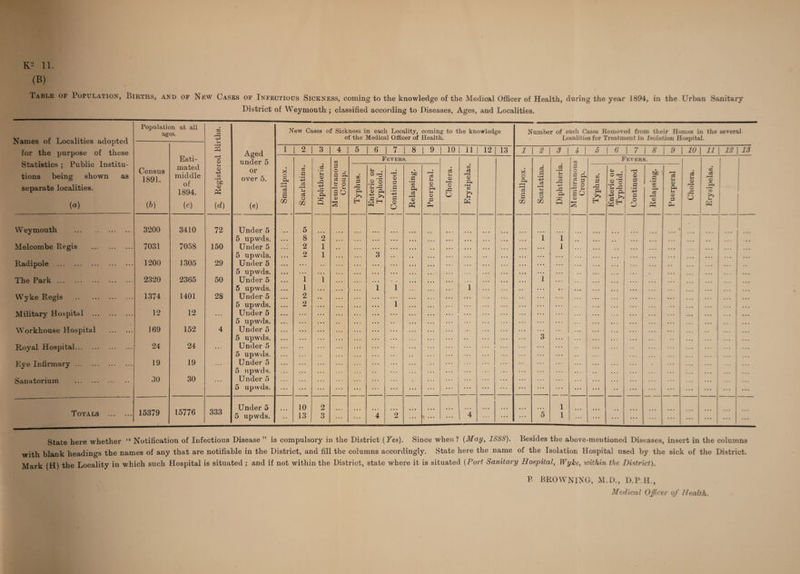 K= 11.
(B)
Table of Population, Births, and of New Cases of Infectious Sickness, coming to the knowledge of the Medical Officer of Health, during the year 1894, in the Urban Sanitary
District of Weymouth ; classified according to Diseases, Ages, and Localities.
Names of Localities adopted for the purpose of these Statistics ; Public Institutions being shown as separate localities. (a) | Population at all ages. | Census 1891. (b) | Estimated middle of 1894. (c) | Registered Births. (d) | Aged under 5 or over 5. (e)
New Cases of Sickness in each Locality, coming to the knowledge of the Medical Officer of Health.
1 2 3 4 5 6 7 8 9 10 11 12 13
Smallpox. | Scarlatina. | Diphtheria. | Membranous Croup. | Fevers. | Typhus. | Enteric or Typhoid. | Continued. | Relapsing. | Puerperal. | Cholera. | Erysipelas.
Number of such Cases Removed from their Homes in the several Localities for Treatment in Isolation Hospital.
1 2 3 4 5 6 7 8 9 10 11 12 13
Smallpox. | Scarlatina. | Diphtheria. | Membranous Croup. | Fevers. | Typhus. | Enteric or Typhoid. | Continued | Relapsing. | Puerperal | Cholera. | Erysipelas.
Weymouth ... 3200 3410 72 Under 5 ... 5
5 upwds. ... 8 2 ... 1 1
Melcombe Regis ... 7031 7058 150 Under 5 ... 2 1 ... 1
5 upwds. ... 2 1 ... 3
Radipole ... 1200 1305 29 Under 5
5 upwds.
The Park ... 2320 2365 50 Under 5 ... 1 1 ... 1
5 upwds. ... 1 ... 1 1 ... 1
Wyke Regis ... 1374 1401 28 Under 5 ... 2
5 upwds. ... 2 ... 1
Military Hospital ... 12 12 ... Under 5
5 upwds.
Workhouse Hospital ... 169 152 4 Under 5
5 upwds. ... 3
Royal Hospital... 24 24 ... Under 5
5 upwds.
Eye Infirmary ... 19 19 ... Under 5
5 upwds.
Sanatorium ... 30 30 ... Under 5
5 upwds.
Totals ... 15379 15776 333 Under 5 ... 10 2 ... 1
5 upwds. ... 13 3 ... 4 2 ... 4 ... 5 1
State here whether “Notification of Infectious Disease” is compulsory in the District (Yes). Since when? (May, 1888). Besides the above-mentioned Diseases, insert in the columns
with blank headings the names of any that are notifiable in the District, and fill the columns accordingly. State here the name of the Isolation Hospital used by the sick of the District.
Mark (H) the Locality in which such Hospital is situated ; and if not within the District, state where it is situated (Port Sanitary Hospital, Wyke, within the District).
B BROWNING, M.D., D.P.H.,
Medical Officer of Health.